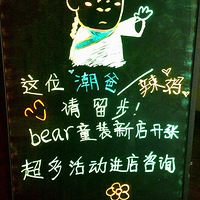 这位潮爸/辣妈
请留步!
bear童装新店开张
超多活动进店咨询